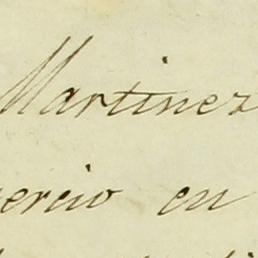 Martinez
ercio en